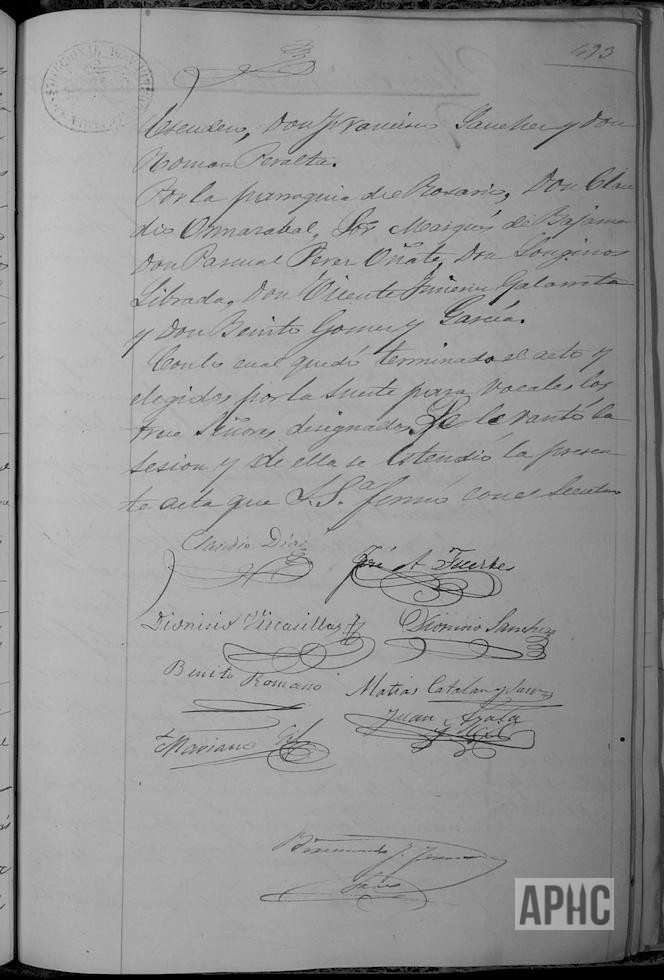 493
Escudero, Don Francisco Sanchez y Don
Roman Peralta.
Por la parroquia del Rosario, Don Clau
dio Sor Marqués de Bajamar
Don Pascual Perez Oñate, Don Longinos
Librada, Don Vicente Jimenez Galarreta
y Don Benito Gomez y García.
Con lo cual quedó terminado el acto y
elegidos por la suerte para vocales los
trece Señores designados. Se levantó la
sesion y de ella se estendió la presen
te acta que S.Sª firmó con el Secretario
Claudio Diaz
José A Fuertes
Dionisio Viscasillas
Dionisio Sanchez
Benito Romano
Matias Catalan y
Juan Ayala
Mariano Gil
APHC